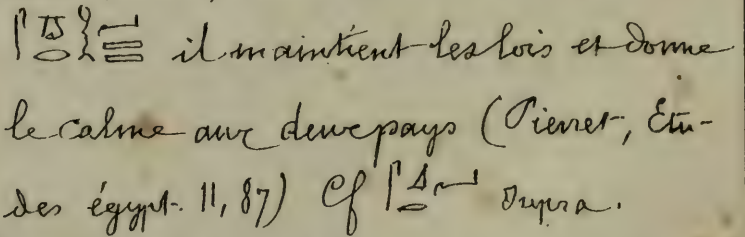 il maintient les lois et donne
le calme aux deux pays (Pierret, Etu-
des égypt. II, 87) Cf supra.